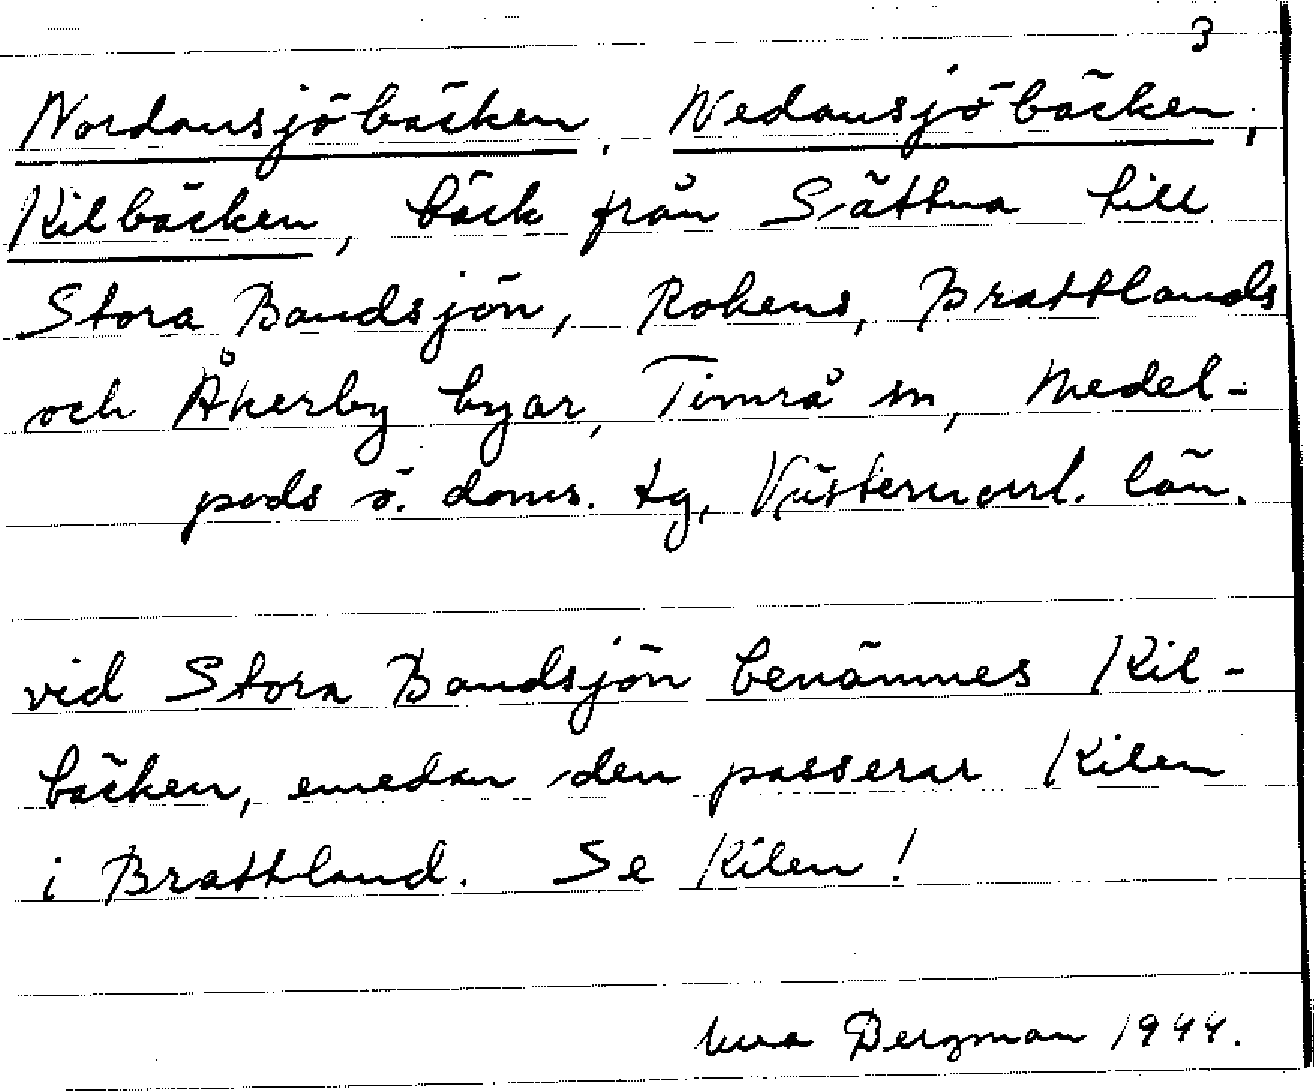 3
Nordansjöbäcken, Nedansjöbäcken,
Kilbäcken, bäck från Sättna till
Stora Bandsjön, Rokens, Brattlands
och Åkerby byar, Timrå sn, Medel-
pads ö. doms. tg, Västernorrl. län.
vid Stora Bandsjön benämnes Kil-
bäcken, emedan den passerar Kilen
i Brattland. Se Kilen!
Bergman 1944.